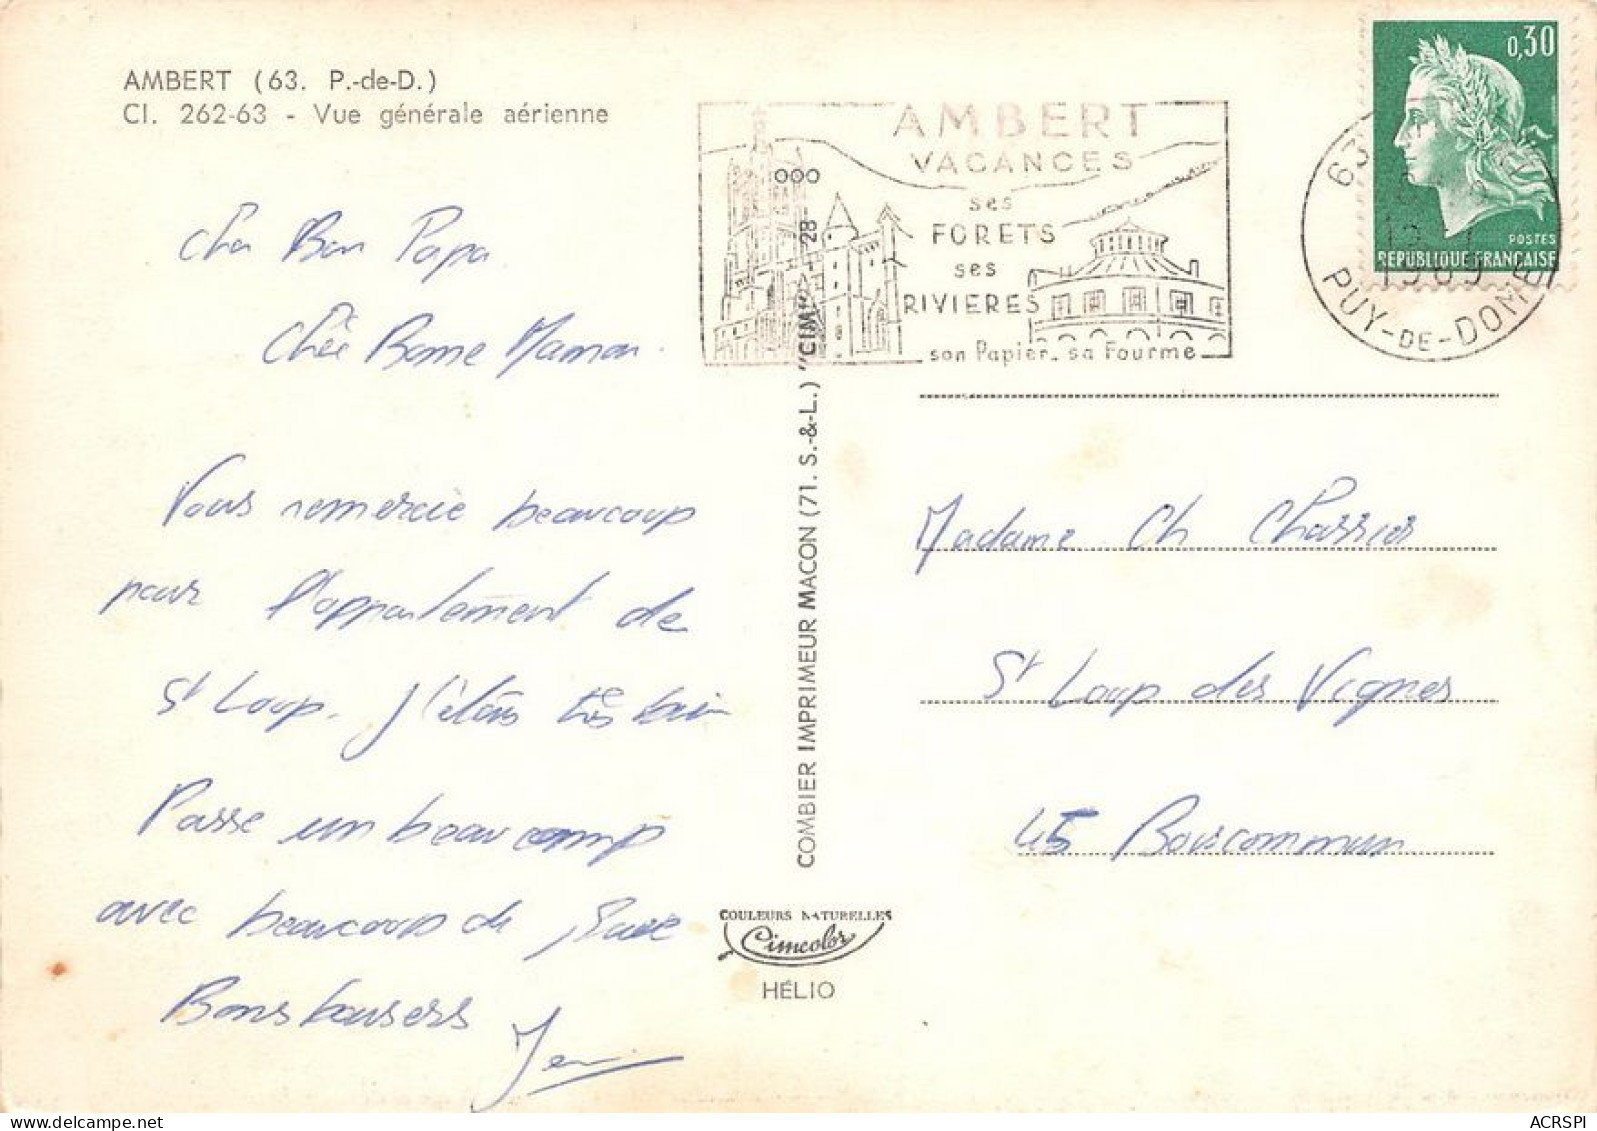 AMBERT (63. P.-de-D.)
Cl. 262-63 - Vue générale aérienne
Cher Bon Papa
Chère Bonne Maman.
Vous remercie beaucoup
pour l'appartement de
St Loup. J'étais très bien
Passe un beaucoup
avec beaucoup de
Bons baisers
AMBERT
VACANCES
ses
FORETS
ses
RIVIERES
son Papier_ sa Fourme
0,30
POSTES
REPUBLIQUE FRANÇAISE
63
1969
PUY-DE-DOME
COMBIER IMPRIMEUR MACON (71. S.-&-L.) "CIM"
28
Madame Ch Charrier
St Loup des Vignes
45 Boiscommun
COULEURS NATURELLES
Cimcolor
HÉLIO
ACRSPI